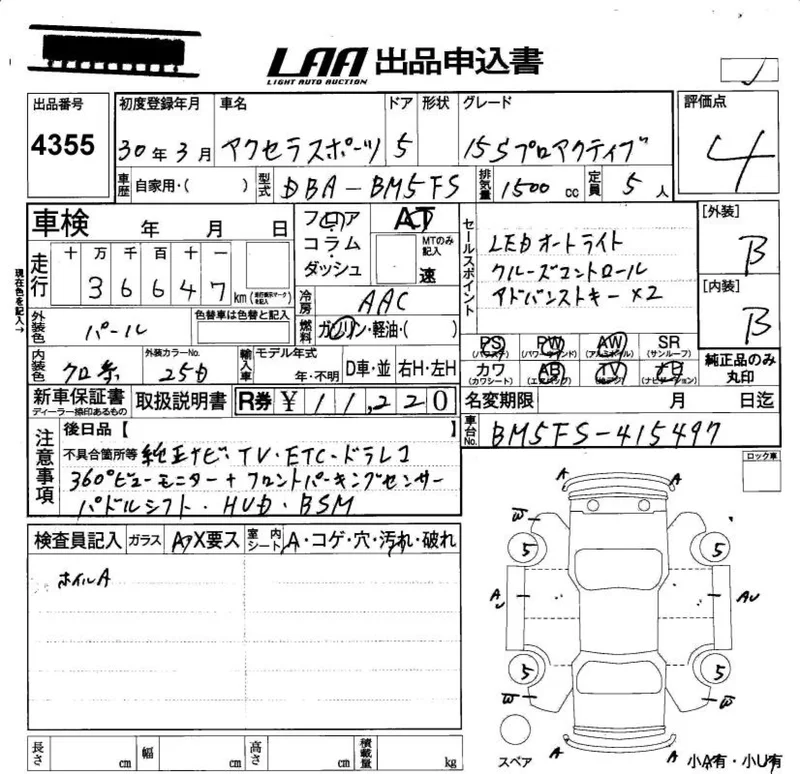 LAA 出品申込書
LIGHT AUTO AUCTION
出品番号 4355
初度登録年月 30年3月
車名 アクセラスポーツ
ドア 5
形状
グレード 15Sプロアクティブ
評価点 4
車歴 自家用・( )
型式 DBA-BM5FS
排気量 1500cc
定員 5人
車検 年 月 日
フロア コラム・ダッシュ
AT
MTのみ記入
速
セールスポイント
LEDオートライト
クルーズコントロール
アドバンストキー×2
[外装] B
[内装] B
現在色を記入→
走行 十 万 千 百 十 一
3 6 6 4 7 km (走行表示マークを記入)
冷房 AAC
燃料 ガソリン・軽油・( )
外装色 パール
色替車は色替と記入
内装色 クロ系
外装カラーNo. 25D
輸入車 モデル年式 年・不明
D車・並 右H・左H
PS (パワステ) PW (パワーウインド) AW (アルミホイル) SR (サンルーフ)
カワ (カワシート) AB (エアバッグ) TV (地デジ) ナビ (ナビゲーション)
純正品のみ丸印
新車保証書
ディーラー捺印あるもの
取扱説明書
R券 ¥ 11,220
名変期限 月 日迄
車台No. BM5FS-415497
注意事項
後日品【 】
不具合箇所等 純正ナビ・TV・ETC・ドラレコ
360°ビューモニター+フロントパーキングセンサー
パドルシフト・HUD・BSM
ロック車
検査員記入 ガラス A ア X要ス
室内 シート A・コゲ・穴・汚れ・破れ
ホイルA
A A
W W
5 5
AU AU
5 5
W W
A A
スペア
小A有・小U有
長さ cm 幅 cm 高さ cm 積載量 kg